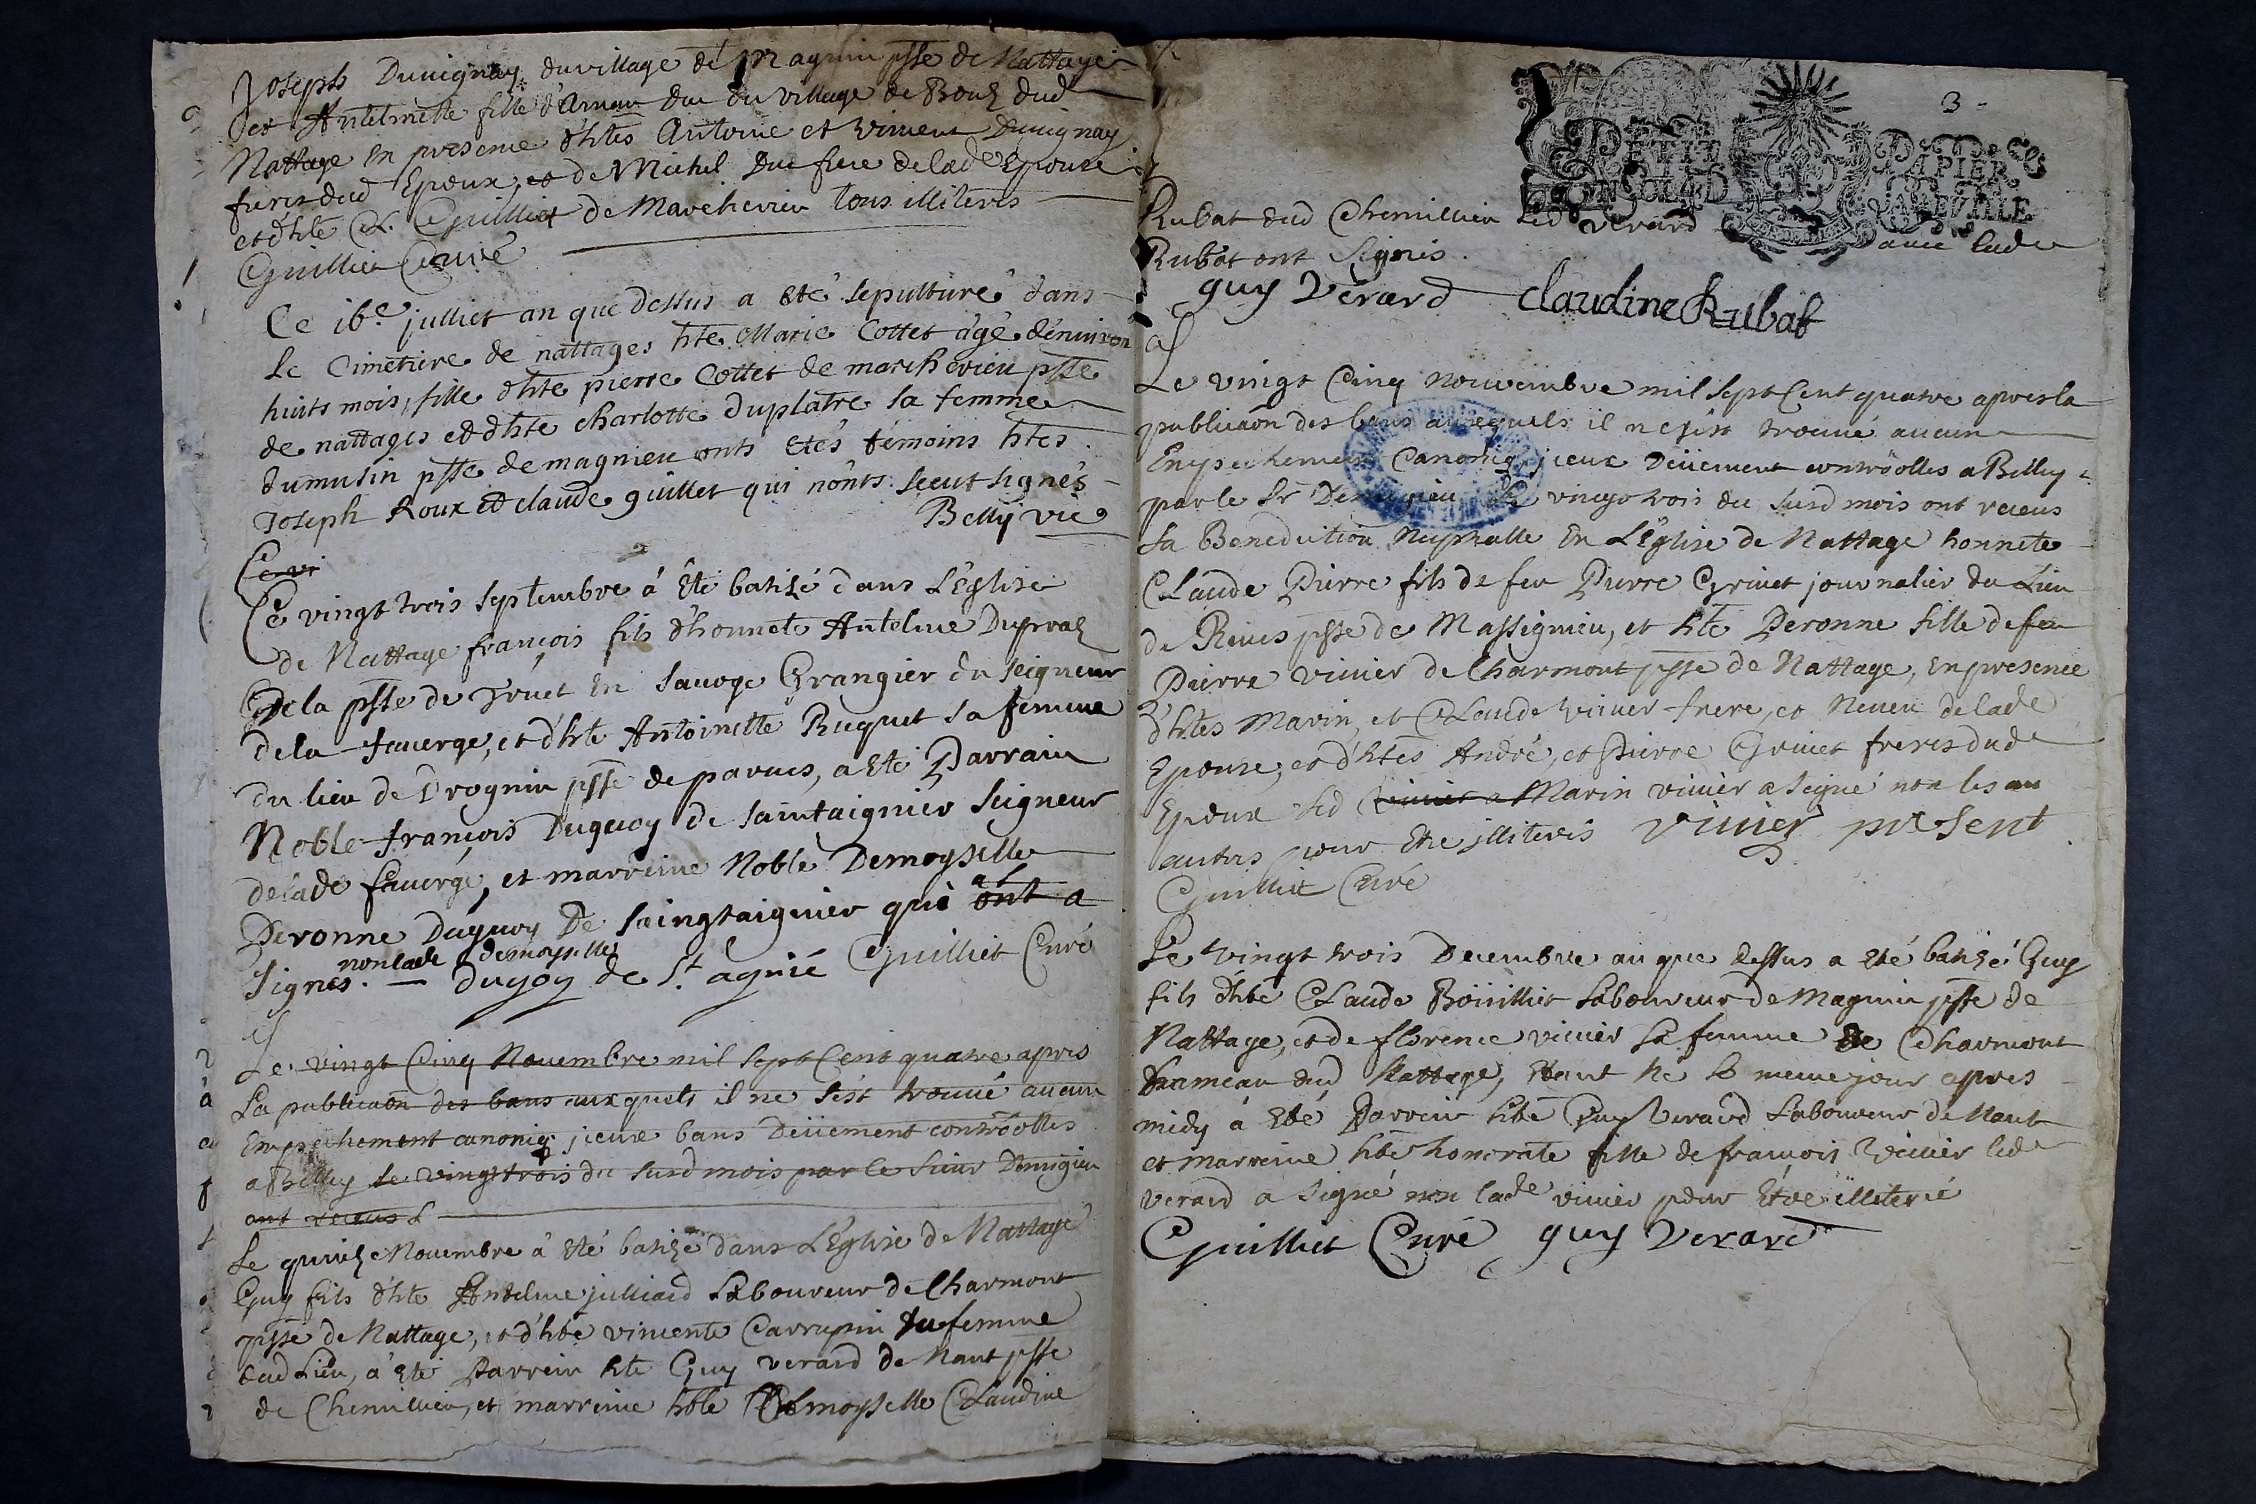 Joseph Duvignay du village de Magnin psse de Nattage
et Antelmette fille d'Aman Duc du village de Bouz dud
Nattage en presence d'htes Antoine et Vincent Duvignay
freres dud Epoux, et de Michel Duc frere de lade Epouse
et d'hte Cl. Guilliet de Marcherieu tous illiteres
Guilliet Curé
Ce 16e julliet an que dessus a eté sepulturé dans
le Cimetiere de nattages hte Marie Cottet âgé d'environ
huits mois, fille d'hte pierre Cottet de marcherieu psse
de nattages et d'hte charlotte duplatre sa femme
dumusin psse de magnieu onts etés témoins htes
Joseph Roux et claude guillet qui n'onts sceut signés
Belly vic
Ce vi
Ce vingt trois septembre à été batizé dans L'Eglise
de Nattage françois fils d'honnete Antelme Duproaz
De la psse de Truet en Savoye Grangier du seigneur
de la faverge, et d'hte Antoinette Ruquet sa femme
du lieu de Drognin psse de parves, a eté Parrain
Noble françois Duquoy de saintaignier Seigneur
de lade faverge, et marreine Noble Demoyselle
al
Peronne Duquoy De saingtaignier qui ont a
non lade demoyselle
signes. — duqoy de St. agnié Guilliet Curé
Le vingt Cinq Novembre mil sept Cent quatre apres
La publicaon des bans auxquels il ne s'est trouvé aucun
Empechement canoniq. jceux bans Deüement contröolles
a Belley le vingt trois du surd mois par le sieur Demigieu
ont receus L
Le quinze Novembre à eté batizé dans L'Eglise de Nattage
Guy fils d'hte Antelme julliard Laboureur de Charmont
psse de Nattage, et d'hte vincente Carrupin sa femme
dud Lieu, a eté Parrein hte Guy verard de Nant psse
de Chemillieu, et marreine hble Demoyselle Claudine
3
PETIT PAPIER
Rubat dud Chemillieu led verard avec lade
Rubat ont signés.
guy Verard claudine Rubat
Le vingt Cinq Nouvembre mil sept Cent quatre apres la
publicaon des bans auxquels il ne s'est trouvé aucun
Empechement Canoniq. jceux Deüement contröolles a Belley
par le Sr Demigieu le vingt trois du surd mois ont receus
la Benediction Nuptialle En L'Eglise de Nattage honnete
Claude Pierre fils de feu Pierre Grinet journalier du Lieu
de Rives psse de Massignieu, et hte Peronne fille de feu
Pierre vivier de Charmont psse de Nattage, En presence
d'htes Marin, et Claude vivier frere, et Neveu de lade
Epouse; et d'htes André, et Pierre Grinet freres dud
Epoux led vivier a Marin vivier a signé non les au
autres pour etre jlliteres vivier present
Guilliet Curé
Le vingt trois Decembre an que dessus a eté batizé Guy
fils d'hte Claude Boüillier Laboureur de Magnin psse de
Nattage, et de florence vivier sa femme de Charmont
hameau dud Nattage, Etant né le meme jour apres
midy à Eté Parrein hte Guy Verard Laboureur de Nant
et marreine hte honorate fille de françois Vivier led
verard a signé non lade vivier pour être illiterée
Guilliet Curé guy Verard